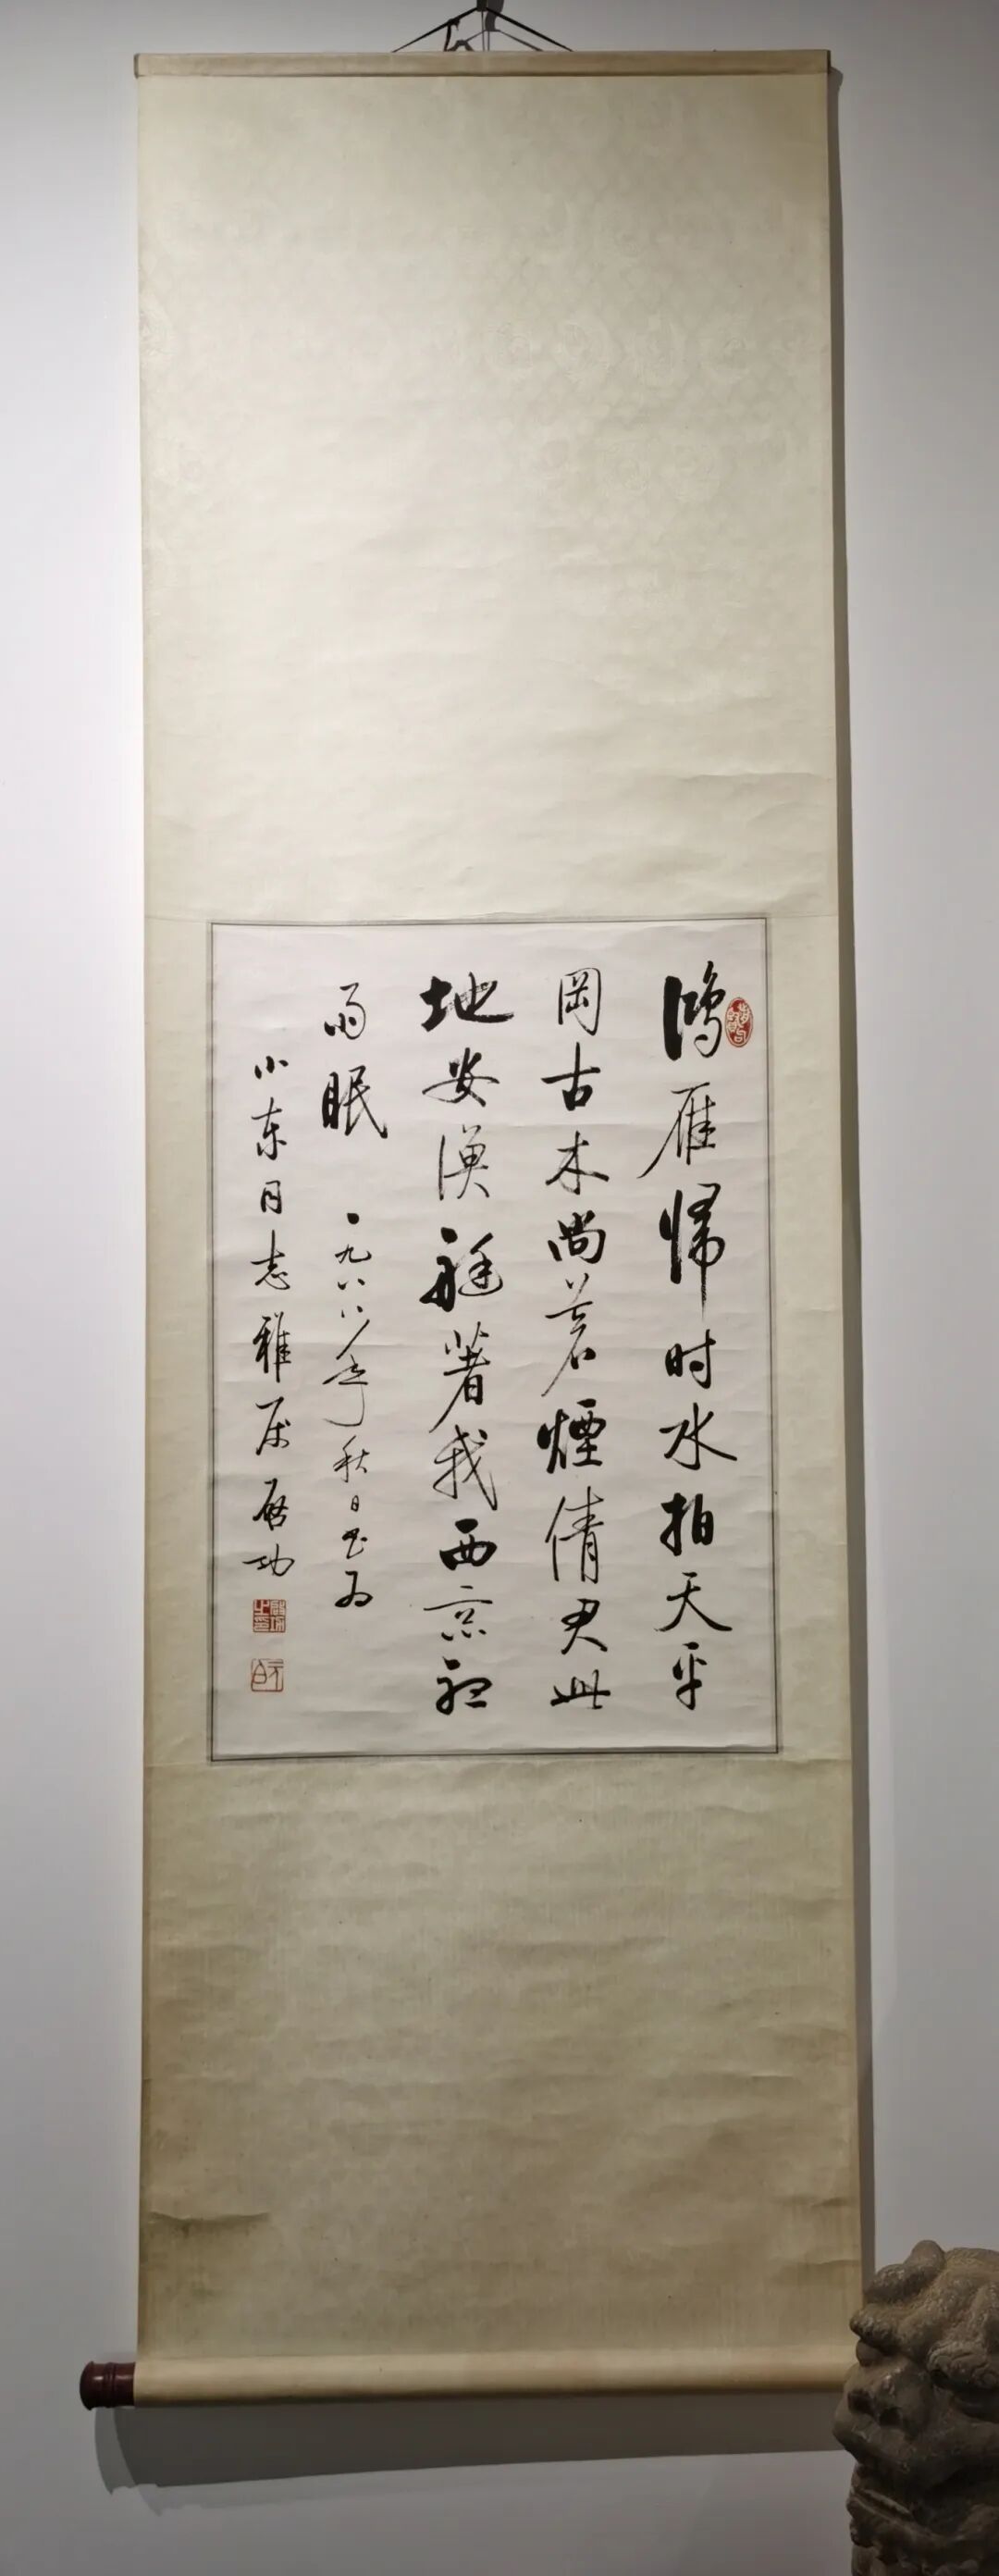 鴻雁帰时水拍天平
岡古木尚蒼煙倩君此
地安漁艇著我西京聽
雨眠 一九八八年秋日书为
小东同志雅属 启功